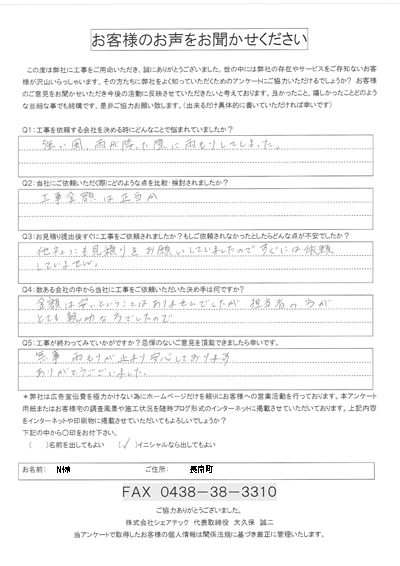 お客様のお声をお聞かせください
この度は弊社に工事をご用命いただき、誠にありがとうございました。世の中には弊社の存在やサービスをご存知ないお客
様が沢山いらっしゃいます。その方たちに弊社をよく知っていただくためのアンケートにご協力いただけるでしょうか？ お客様
のご意見をお聞かせいただき今後の活動に反映させていただきたいと考えております。良かったこと、嬉しかったことどのよう
な些細な事でも結構です、是非ご協力お願い致します。（出来るだけ具体的に書いていただければ幸いです）
Q1：工事を依頼する会社を決める時にどんなことで悩まれていましたか？
強い風、雨が降った際に雨もりしてしまった。
Q2：当社にご依頼いただく際にどのような点を比較・検討されましたか？
工事金額は正当か
Q3：お見積り提出後すぐに工事をご依頼されましたか？もしご依頼されなかったとしたらどんな点が不安でしたか？
他社にも見積りをお願いしていましたのですぐには依頼
していません。
Q4：数ある会社の中から当社に工事をご依頼いただいた決め手は何ですか？
金額は安いということはありませんでしたが 担当者の方が
とても親切な方でしたので
Q5：工事が終わってみていかがですか？忌憚のないご意見を頂戴できましたら幸いです。
無事 雨もりが止まり安心しております
ありがとうございました。
＊弊社は広告宣伝費を極力かけない為にホームページだけを頼りにお客様への営業活動を行っております。本アンケート
用紙またはお客様宅の調査風景や施工状況を随時ブログ形式のインターネットに掲載させていただいております。上記内容
をインターネットや印刷物に掲載させていただいてもよろしいでしょうか？
下記の中から〇印をお付下さい。
（ ）名前を出してもよい （✓）イニシャルなら出してもよい
お名前： N様 ご住所： 長南町
FAX 0438-38-3310
ご協力ありがとうございました。
株式会社シェアテック 代表取締役 大久保 誠二
当アンケートで取得したお客様の個人情報は関係法規に基づき厳正に管理いたします。